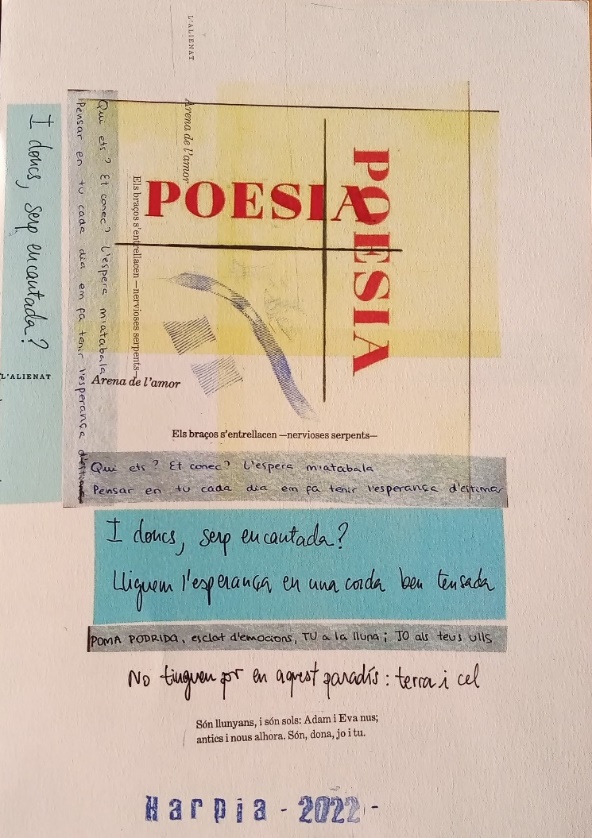 L'ALIENAT
Arena de l'amor
POESIA
POESIA
Els braços s'entrellacen —nervioses serpents—
Qui ets? Et conec? L'espera m'atabala
Pensar en tu cada dia em fa tenir l'esperança d'estimar
I doncs, serp encantada?
L'ALIENAT
Arena de l'amor
Els braços s'entrellacen —nervioses serpents—
Qui ets? Et conec? L'espera m'atabala
Pensar en tu cada dia em fa tenir l'esperança d'estimar
I doncs, serp encantada?
Lliguem l'esperança en una corda ben tensada
POMA PODRIDA, esclat d'emocions, TU a la lluna; JO als teus ulls
No tinguem por en aquest paradís: terra i cel
Són llunyans, i són sols: Adam i Eva nus;
antics i nous alhora. Són, dona, jo i tu.
Harpia - 2022 -